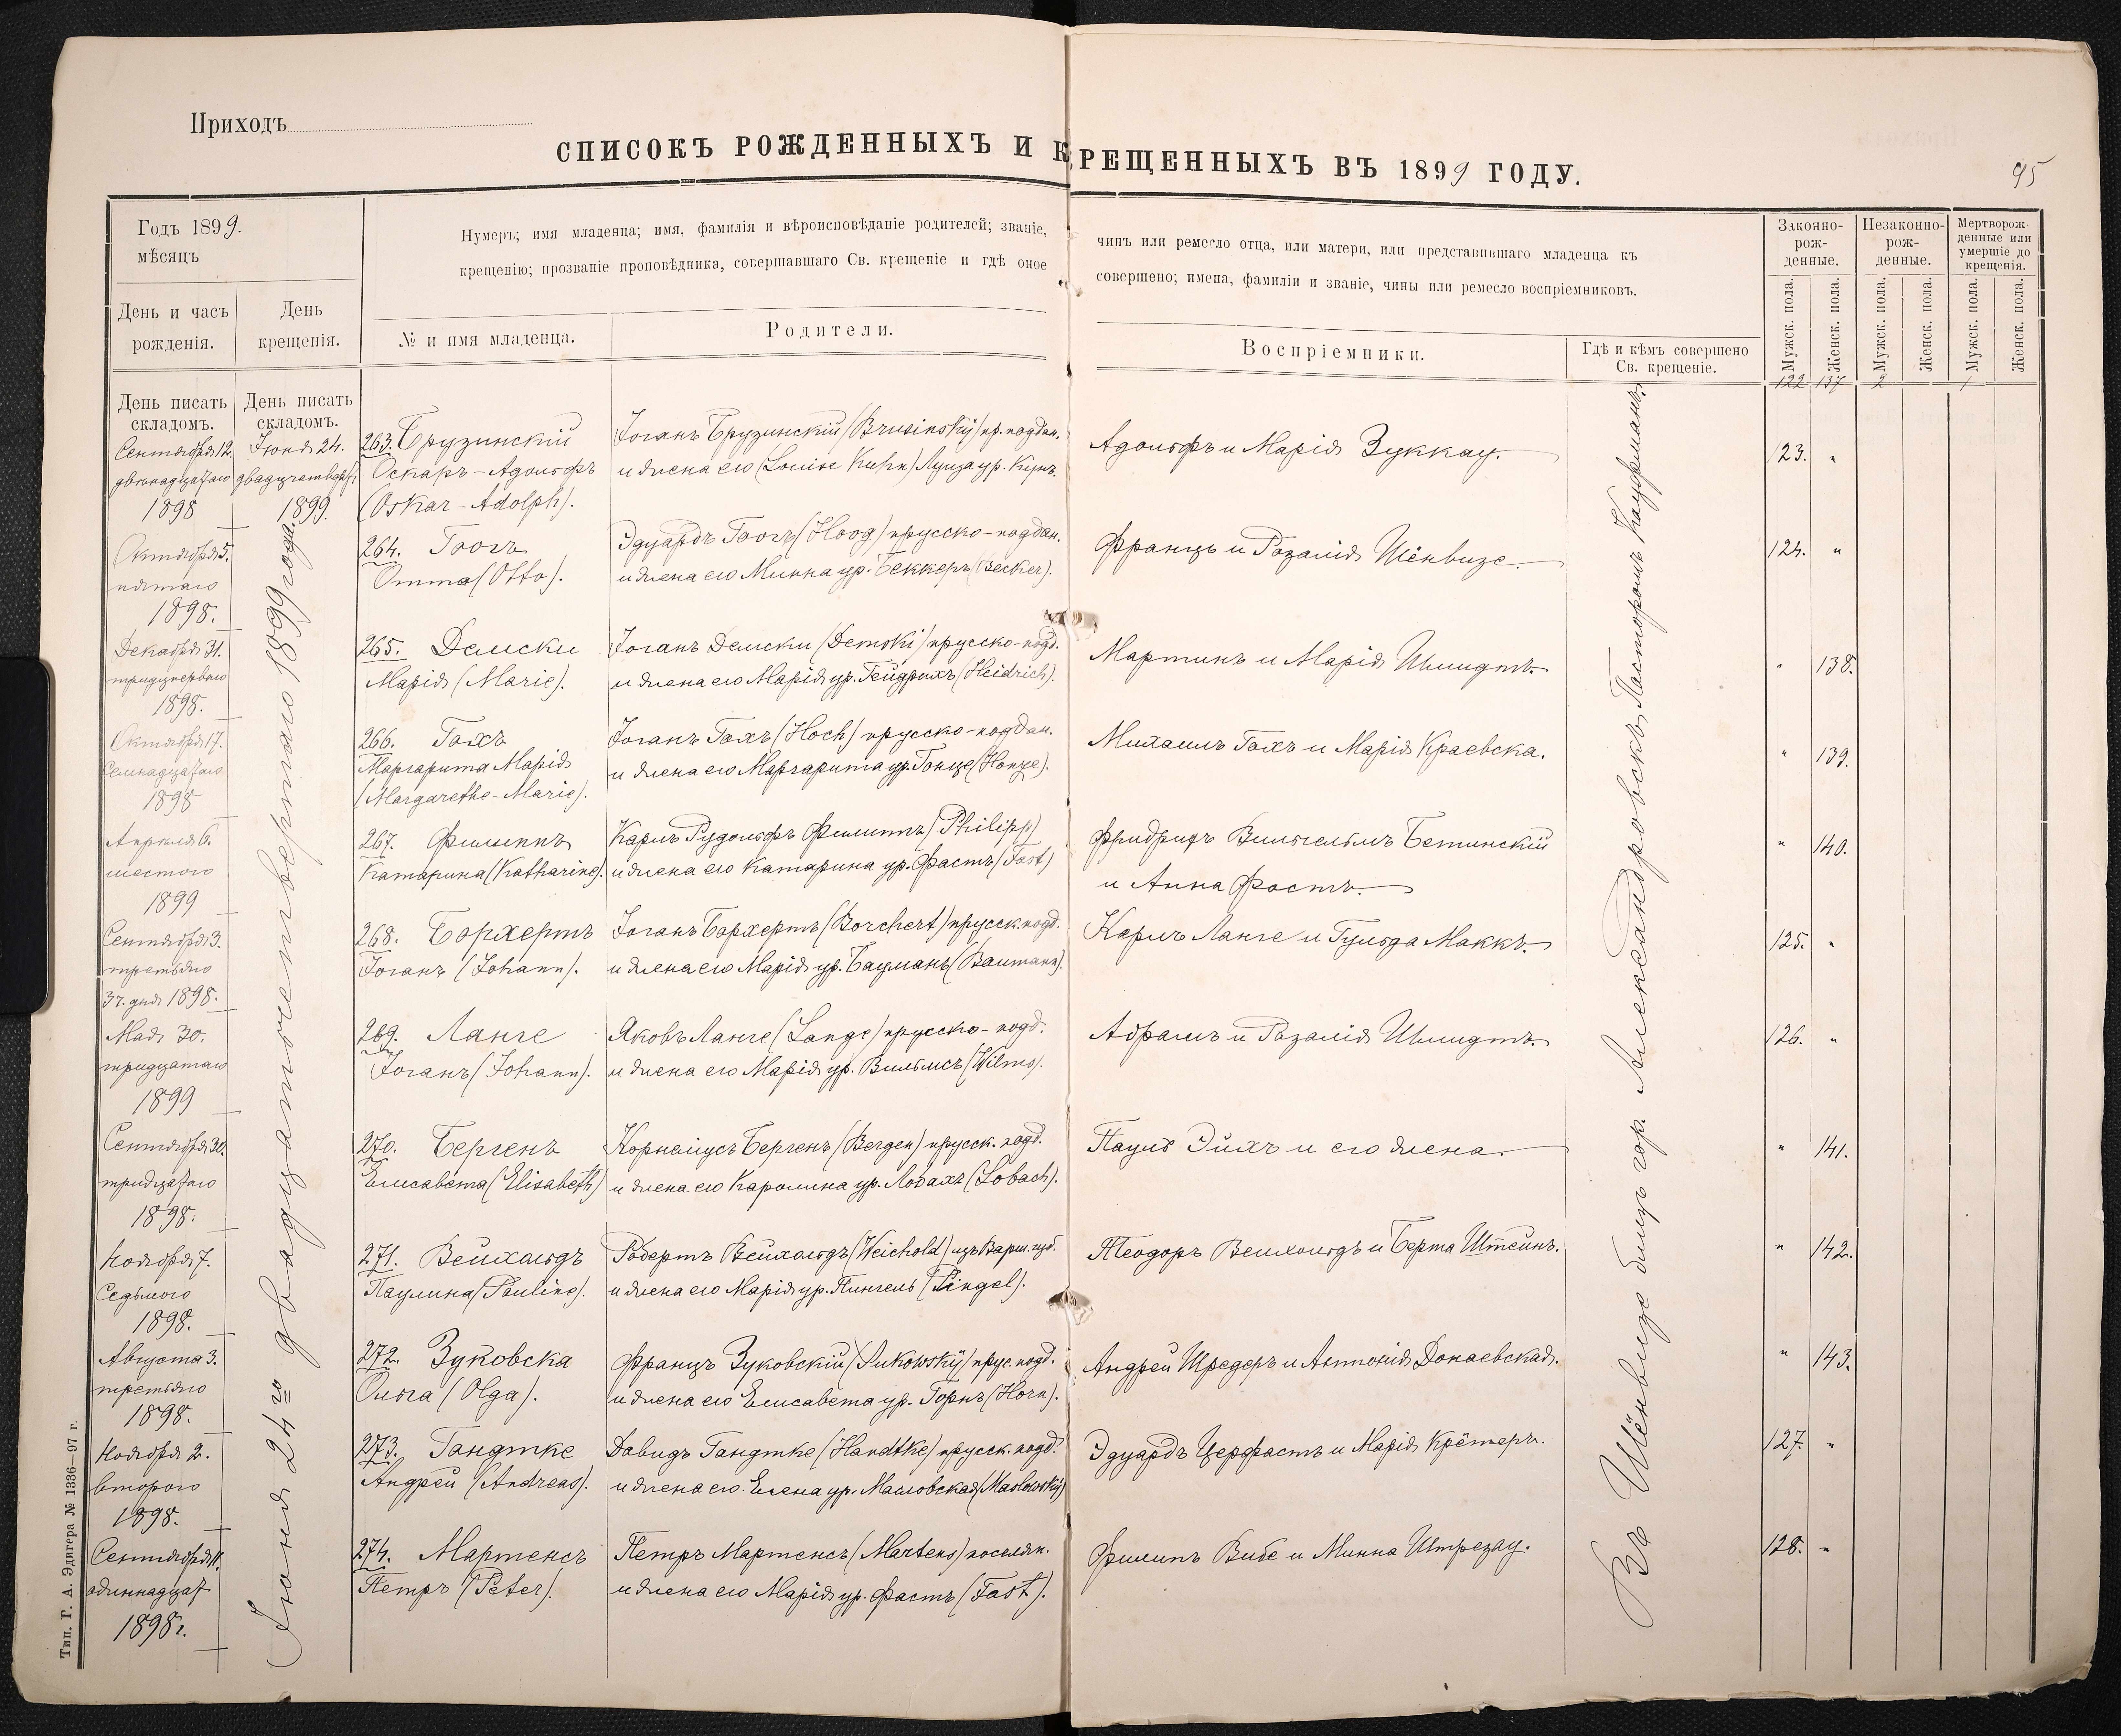 Приходъ
СПИСОКЪ РОЖДЕННЫХЪ И КРЕЩЕННЫХЪ ВЪ 1899 ГОДУ.
95
Годъ 1899.
мѣсяцъ
День и часъ
рожденія.
День
крещенія.
Нумеръ; имя младенца; имя, фамилія и вѣроисповѣданіе родителей; званіе,
крещенію; прозваніе проповѣдника, совершавшаго Св. крещеніе и гдѣ оное
№ и имя младенца.
Родители.
чинъ или ремесло отца, или матери, или представившаго младенца къ
совершено; имена, фамиліи и званіе, чины или ремесло воспріемниковъ.
Воспріемники.
Гдѣ и кѣмъ совершено
Св. крещеніе.
Законно-
рож-
денные.
Незаконно-
рож-
денные.
Мертворож-
денные или
умершіе до
крещенія.
Мужск. пола.
Женск. пола.
Мужск. пола.
Женск. пола.
Мужск. пола.
Женск. пола.
122 137 2 1
День писать
складомъ.
День писать
складомъ.
Сентября 12.
двѣнадцатаго
1898
Іюня 24.
1899.
263. Брузинскій
Оскаръ-Адольфъ
(Oskar-Adolph).
Іоганъ Брузинскій (Brusinsky) пр. поддан.
и жена его (Louise Kuhn) Луиза ур. Кунъ.
Адольфъ и Марія Зуккау.
123. "
Октября 5.
пятаго
1898.
264. Гоогъ
Отто (Otto).
Эдуардъ Гоогъ (Hoog) прусско-поддан.
и жена его Минна ур. Беккеръ (Becker).
Францъ и Розалія Шёнвизе.
124. "
Декабря 31.
тридцперваго
1898.
265. Демски
Марія (Marie).
Іоганъ Демски (Demski) прусско-подд.
и жена его Марія ур. Гейдрихъ (Heidrich).
Мартинъ и Марія Шмидтъ.
" 138.
Октября 17.
Семнадцатаго
1898
266. Гохъ
Маргарита Марія
(Margarethe-Marie).
Іоганъ Гохъ (Hoch) прусско-поддан.
и жена его Маргарита ур. Гонце (Honze).
Михаилъ Гохъ и Марія Краевска.
" 139.
Апрѣля 6.
шестого
1899
267. Филиппъ
Катарина (Katharine).
Карлъ Рудольфъ Филиппъ (Philipp)
и жена его Катарина ур. Фастъ (Fast)
Фридрихъ Вильгельмъ Бетинскій
и Анна Фастъ.
" 140.
Сентября 3.
третьяго
37. дня 1898.
268. Борхертъ
Іоганъ (Johann).
Іоганъ Борхертъ (Borchert) прусск. подд.
и жена его Марія ур. Бауманъ (Baumann).
Карлъ Ланге и Гульда Маккъ.
125. "
Мая 30.
тридцатаго
1899
269. Ланге
Іоганъ (Johann).
Яковъ Ланге (Lange) прусско-подд.
и жена его Марія ур. Вильмсъ (Wilms).
Абрамъ и Розалія Шмидтъ.
126. "
Сентября 30.
тридцатаго
1898.
270. Бергенъ
Елисавета (Elisabeth)
Корнеліусъ Бергенъ (Bergen) прусск. подд.
и жена его Каролина ур. Лобахъ (Lobach).
Паулъ Эйхъ и его жена.
" 141.
Ноября 7.
Седьмого
1898.
271. Вейхольдъ
Паулина (Pauline).
Робертъ Вейхольдъ (Weichold) изъ Варш. губ.
и жена его Марія ур. Пингель (Pingel).
Теодоръ Вейхольдъ и Берта Штейнъ.
" 142.
Августа 3.
третьяго
1898.
272. Зуковска
Ольга (Olga).
Францъ Зуковскій (Sukowsky) прус. подд.
и жена его Елисавета ур. Горнъ (Horn).
Андрей Шредеръ и Антонія Донаевская.
" 143.
Ноября 2.
второго
1898.
273. Гандтке
Андрей (Andreas).
Давидъ Гандтке (Handtke) прусск. подд.
и жена его Елена ур. Масловская (Maslowsky)
Эдуардъ Церфастъ и Марія Крёкеръ.
127. "
Сентября 11.
одиннадцат
1898 г.
274. Мартенсъ
Петръ (Peter).
Петръ Мартенсъ (Martens) поселян.
и жена его Марія ур. Фастъ (Fast).
Филипъ Вибе и Минна Штрезау.
128. "
Іюня 24го двадцать четвертаго 1899 года.
Въ Шёнвизе близъ гор. Александровскъ, Пасторомъ Кауфманъ.
Тип. Г. А. Эдигера № 1336—97 г.